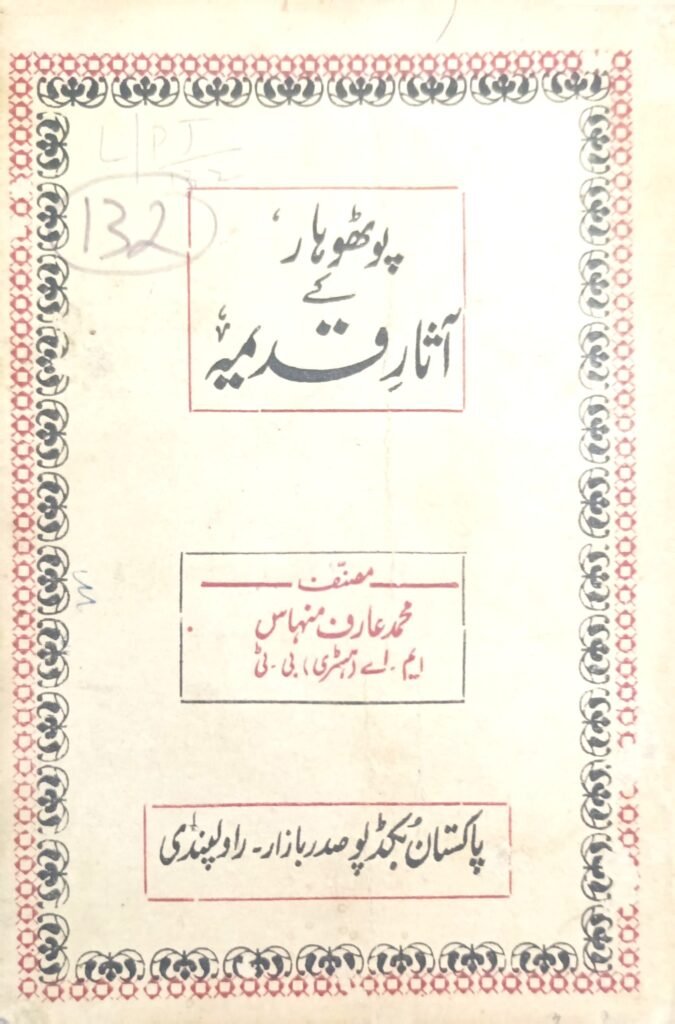 132
پوٹھوہار
کے
آثارِ قدیمہ
مصنّف
محمد عارف منہاس
ایم۔ اے (ہسٹری) بی۔ ٹی
پاکستان بکڈپو صدر بازار۔ راولپنڈی